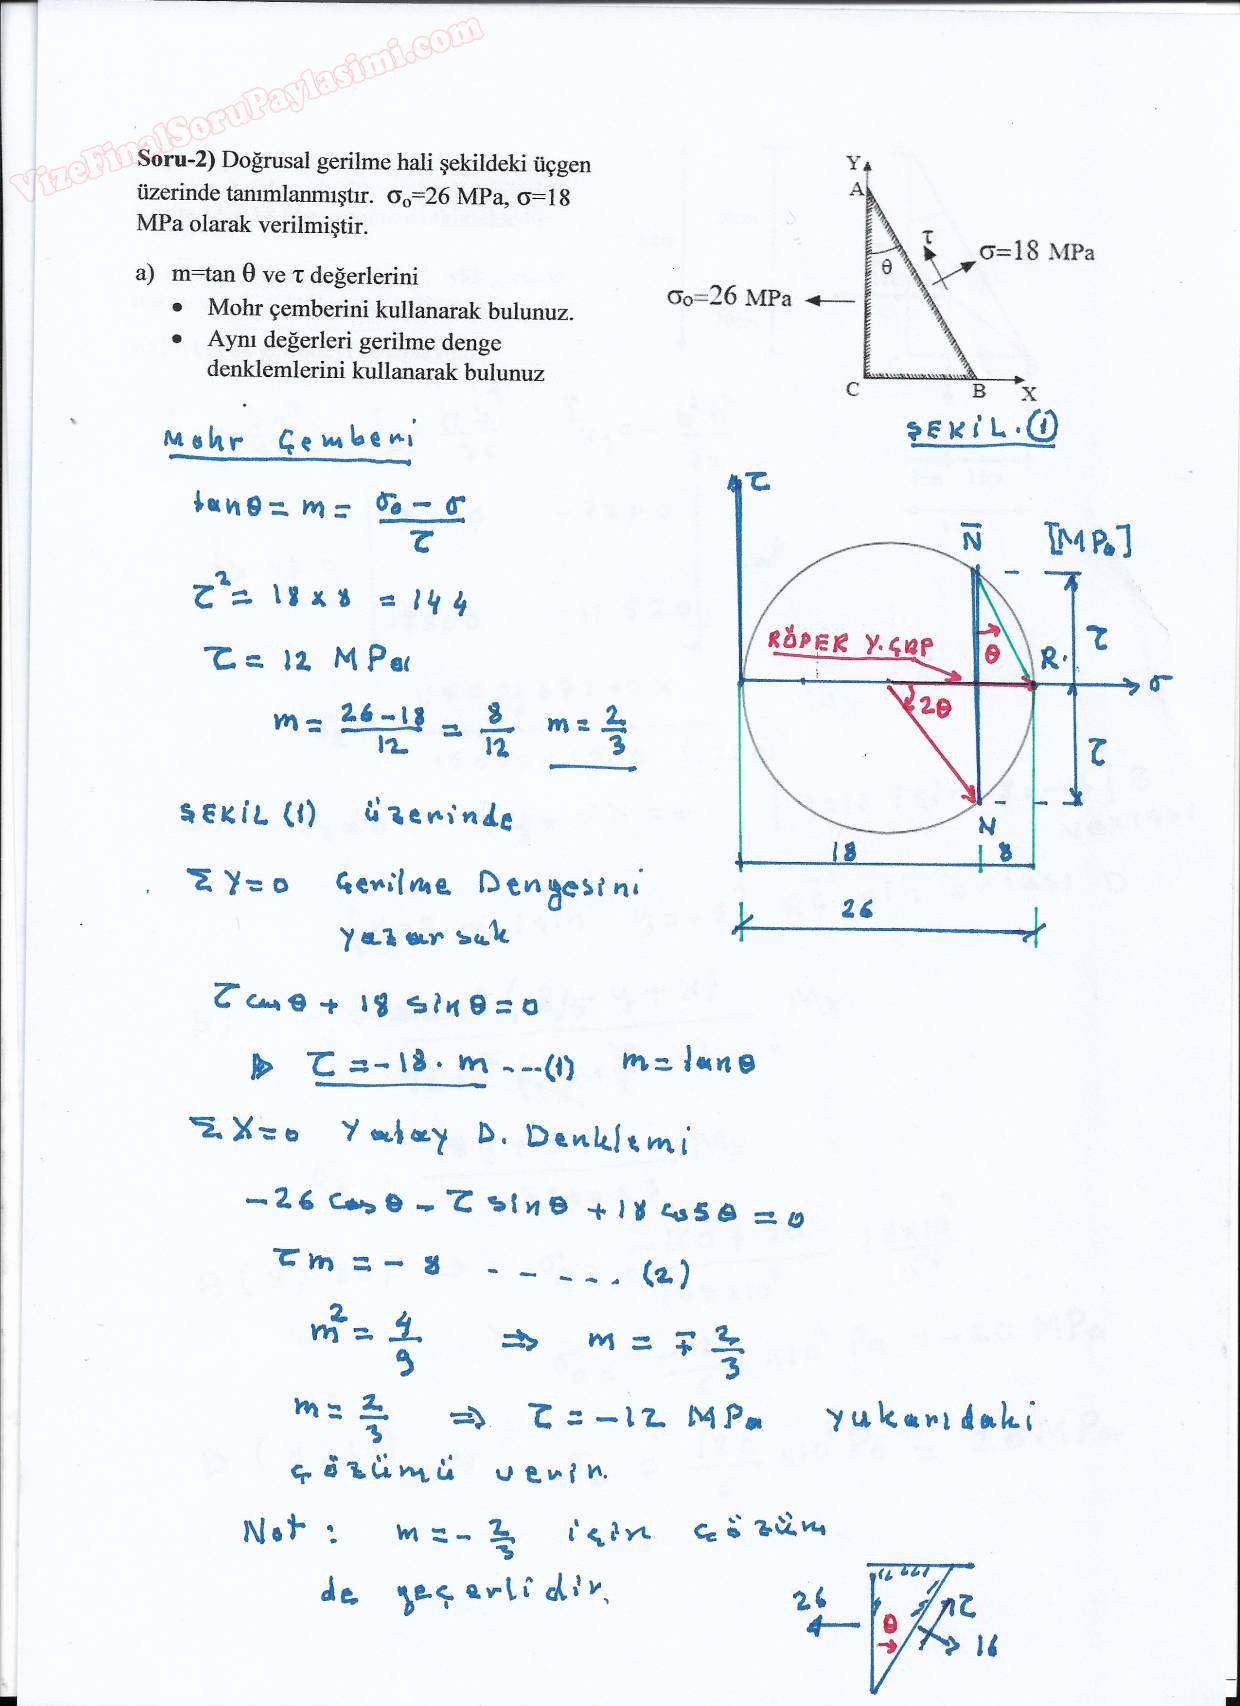 VizeFinalSoruPaylasimi.com
Soru-2) Doğrusal gerilme hali şekildeki üçgen
üzerinde tanımlanmıştır. σo=26 MPa, σ=18
MPa olarak verilmiştir.
a) m=tan θ ve τ değerlerini
• Mohr çemberini kullanarak bulunuz.
• Aynı değerleri gerilme denge
denklemlerini kullanarak bulunuz
Y
A
τ
θ
σ=18 MPa
σo=26 MPa
C
B
X
ŞEKİL.(1)
Mohr Çemberi
tanθ = m = (σo - σ)/τ
τ² = 18 x 8 = 144
τ = 12 MPa
m = (26-18)/12 = 8/12 m = 2/3
τ
N̅
[MPa]
RÖPER Y. ÇAP
θ
R.
τ
σ
2θ
τ
N
18
8
26
ŞEKİL (1) üzerinde
Σ Y=0 Gerilme Dengesini
yazarsak
τ cosθ + 18 sinθ = 0
▷ τ = -18. m ---(1) m = tanθ
Σ X=0 Yatay D. Denklemi
-26 cosθ - τ sinθ + 18 cosθ = 0
τ m = - 8 - - - - . . (2)
m² = 4/9 ⇒ m = ∓ 2/3
m = 2/3 ⇒ τ = -12 MPa yukarıdaki
çözümü verir.
Not : m = - 2/3 için çözüm
de geçerlidir.
26
θ
τ
16